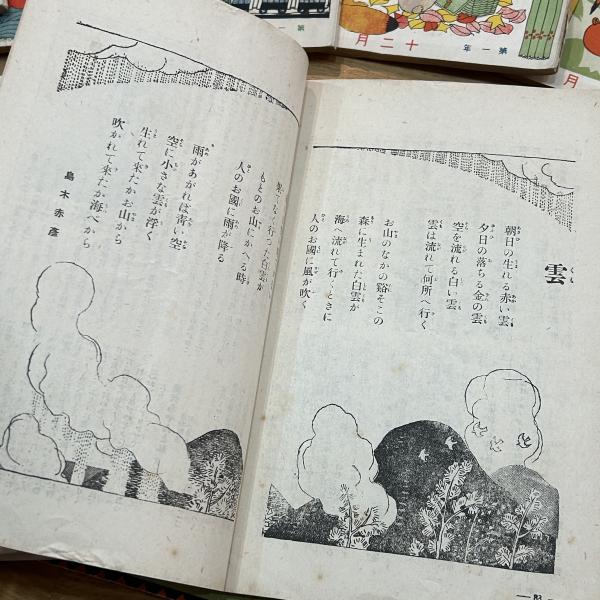 第一
第一年
十二月
月
雲
朝日の生れる赤い雲
夕日の落ちる金の雲
空を流れる白い雲
雲は流れて何所へ行く
お山のなかの谿そこの
森に生まれた白雲が
海へ流れて行くときに
人のお國に風が吹く
てなく行つた白雲が
もとのお山にかへる時
人のお國に雨が降る
雨があがれば青い空
空に小さな雲が浮く
生れて来たかお山から
吹かれて来たか海べから
島木赤彦